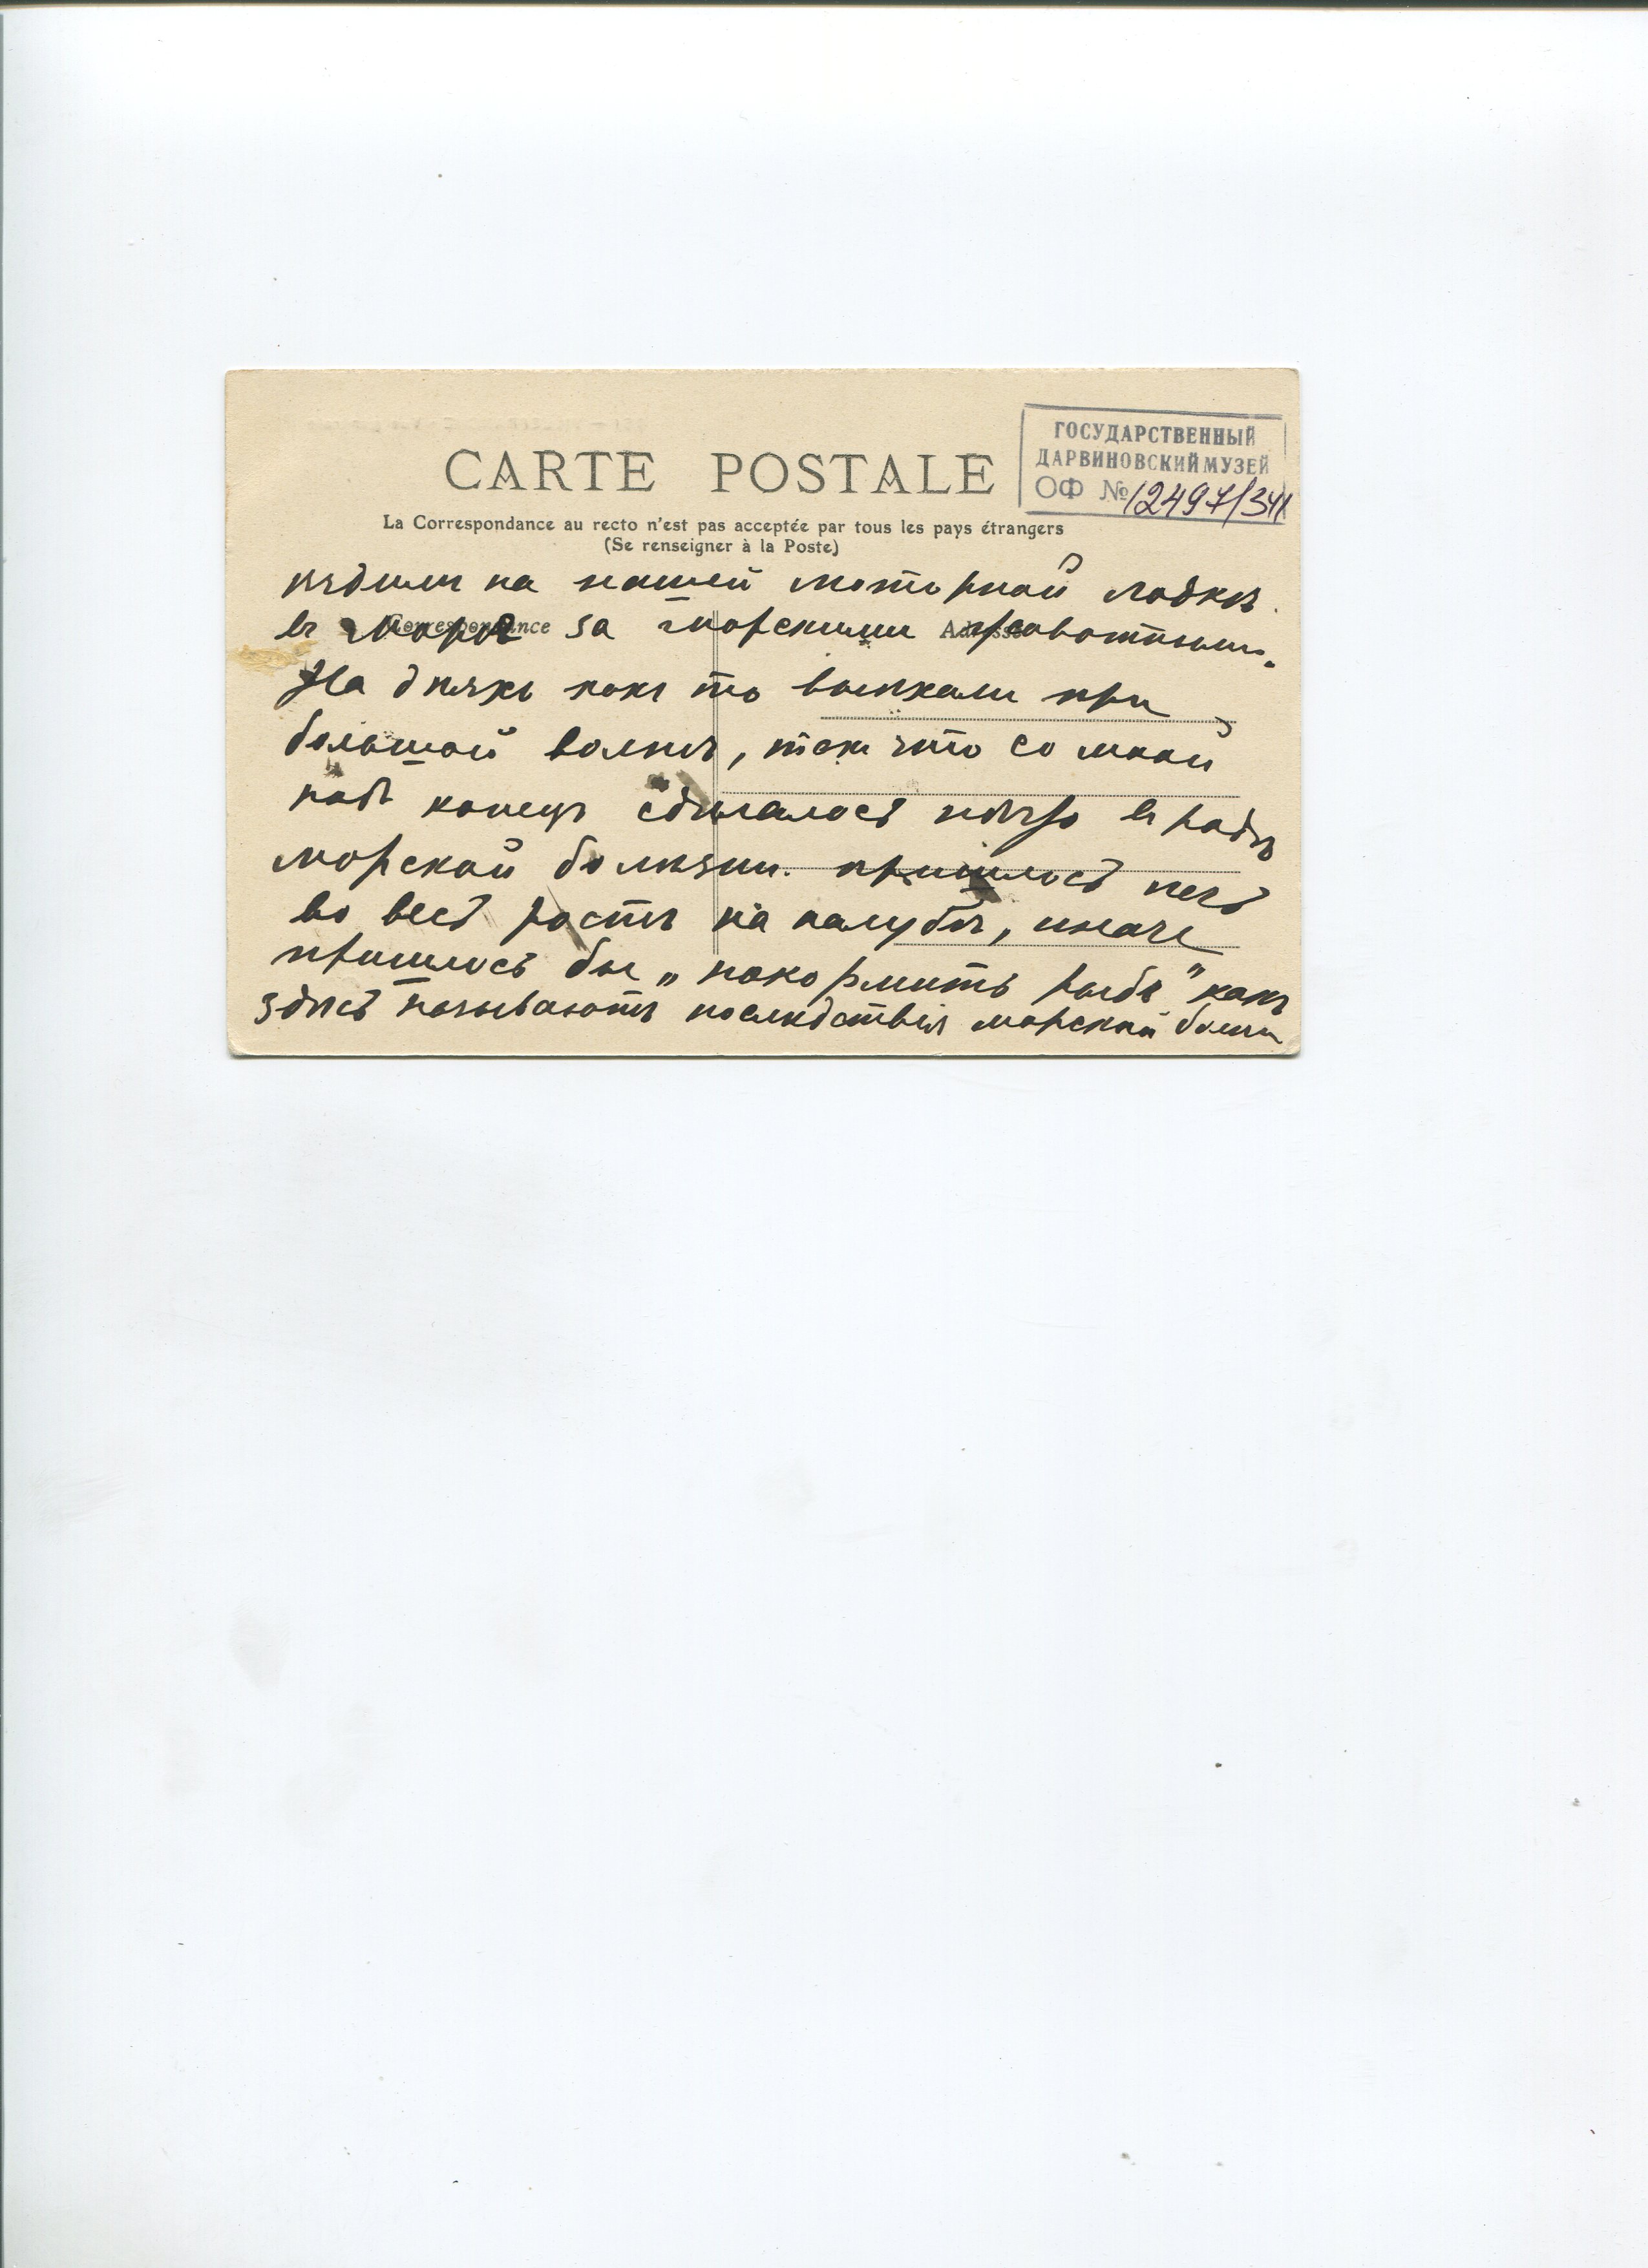 CARTE POSTALE
ГОСУДАРСТВЕННЫЙ
ДАРВИНОВСКИЙ МУЗЕЙ
ОФ № 12497/341
La Correspondance au recto n'est pas acceptée par tous les pays étrangers
(Se renseigner à la Poste)
Correspondance
ѣздили на нашей моторной лодкѣ
въ море за морскими животными.
На дняхъ какъ то выѣхали при
большой волнѣ, такъ что со мной
подъ конецъ сдѣлалось нѣчто въ родѣ
морской болѣзни. пришлось лечь
во весь ростъ на палубѣ, иначе
пришлось бы „покормить рыбъ" какъ
здѣсь называютъ послѣдствія морской